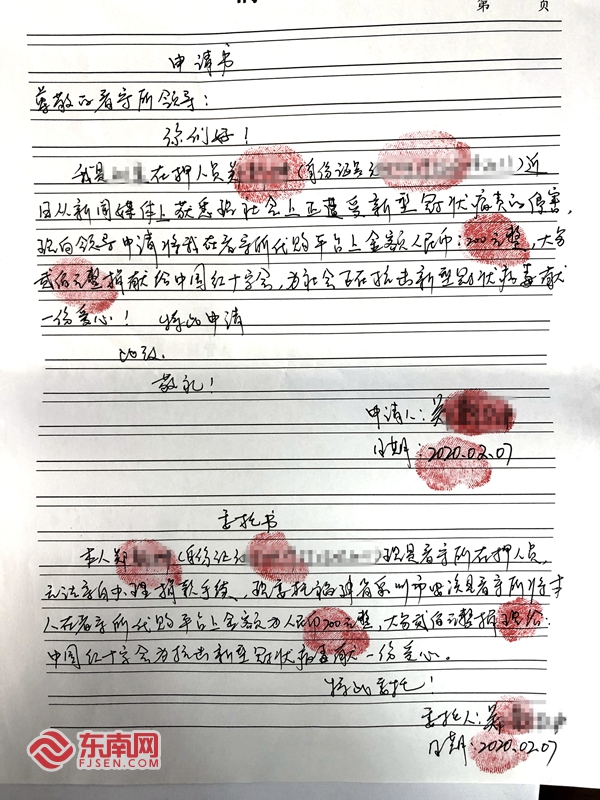 第 页
申请书
尊敬的看守所领导：
你们好！
我是 在押人员 （身份证号 ）近
日从新闻媒体上获悉现社会上正遭受新型冠状病毒的侵害，
现向领导申请将我在看守所代购平台上金额人民币：200元整，大写
贰佰元整捐献给中国红十字会，为社会正在抗击新型冠状病毒献
一份爱心！ 特此申请
此致.
敬礼！
申请人：吴
日期：2020.02.07
委托书
本人郑 （身份证 ）现是看守所在押人员
无法亲自办理捐款手续、现委托福建省泉州市 看守所将本
人在看守所代购平台上金额为人民币200元整，大写贰佰元整捐 给：
中国红十字会为抗击新型冠状病毒献一份爱心。
特此委托！
委托人：吴
日期：2020.02.07
东南网
FJSEN.COM